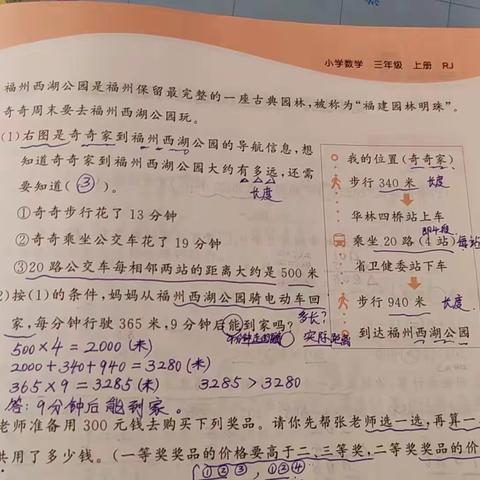 小学数学 三年级 上册 RJ
福州西湖公园是福州保留最完整的一座古典园林,被称为“福建园林明珠”。
奇奇周末要去福州西湖公园玩。
(1)右图是奇奇家到福州西湖公园的导航信息,想
知道奇奇家到福州西湖公园大约有多远,还需
要知道(③)。
长度
①奇奇步行花了 13 分钟
②奇奇乘坐公交车花了 19 分钟
③20 路公交车每相邻两站的距离大约是 500 米
我的位置(奇奇家)
步行 340 米 长度
华林四桥站上车
即4段
乘坐 20 路(4 站)每站
省卫健委站下车
步行 940 米 长度
到达福州西湖公园
2)按(1)的条件,妈妈从福州西湖公园骑电动车回
家,每分钟行驶 365 米,9 分钟后能到家吗?
多长?
实际距离
500×4=2000(米)
2000+340+940=3280(米)
365×9=3285(米) 3285>3280
答:9分钟后能到家。
老师准备用 300 元钱去购买下列奖品。请你先帮张老师选一选,再算一
共用了多少钱。(一等奖奖品的价格要高于二、三等奖,二等奖奖品的价
①②③ , ①②④